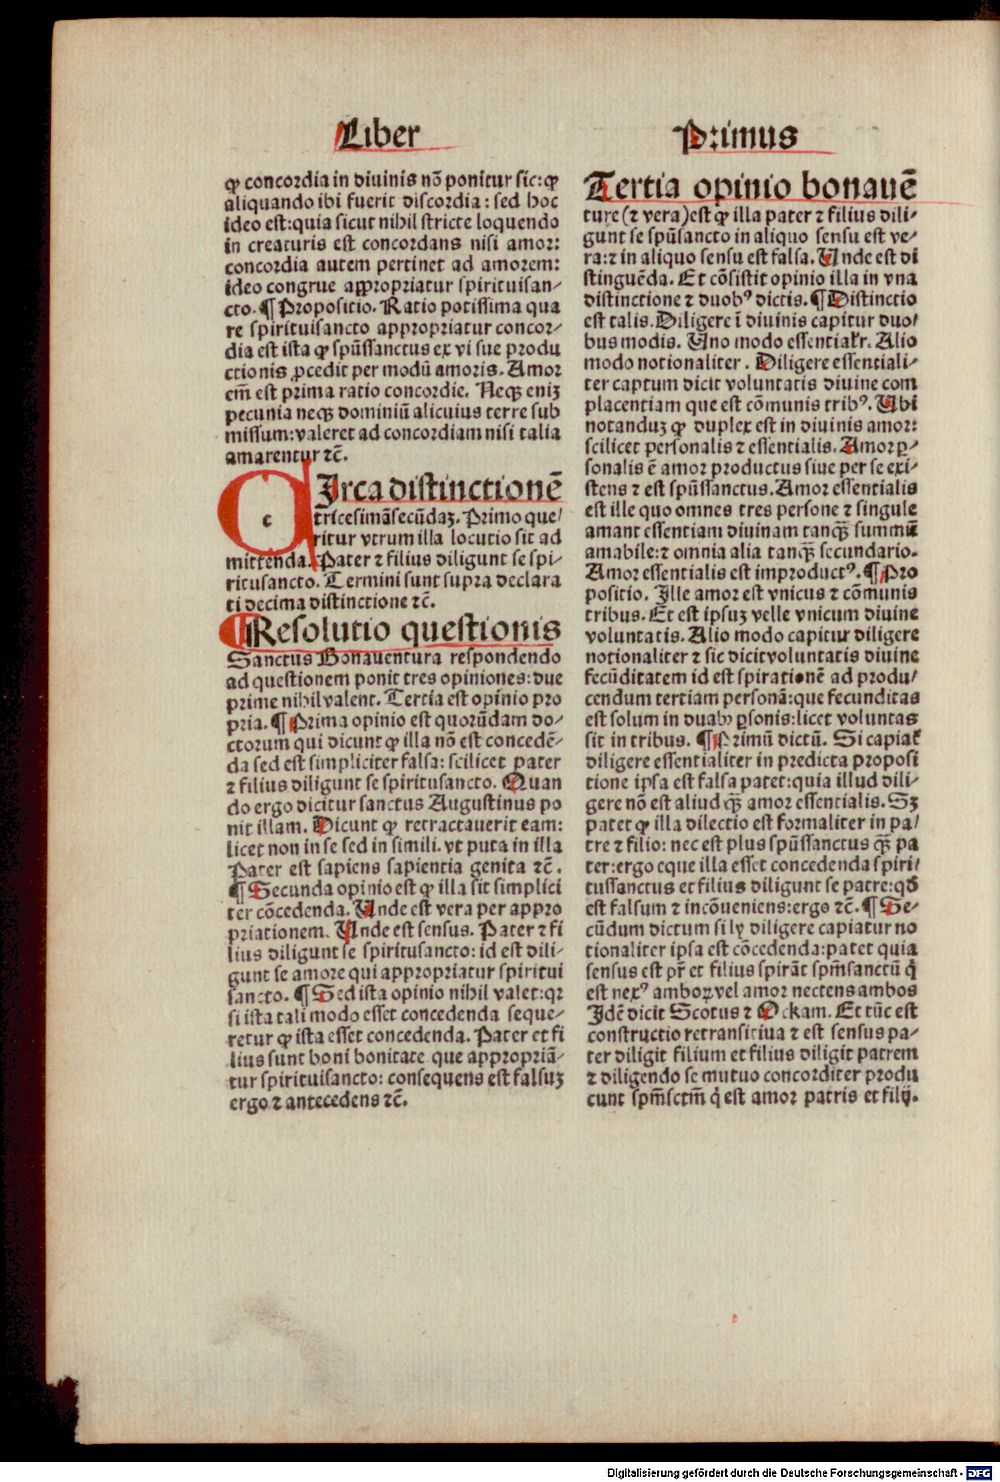 Liber
Primus
ꝙ concordia in diuinis nō ponitur sic: ꝙ
aliquando ibi fuerit discordia: sed hoc
ideo est: quia sicut nihil stricte loquendo
in creaturis est concordans nisi amor:
concordia autem pertinet ad amorem:
ideo congrue appropriatur spirituisan⸗
cto. ¶ Propositio. Ratio potissima qua
re spirituisancto appropriatur concor⸗
dia est ista ꝙ spūssanctus ex vi sue produ
ctionis ꝓcedit per modū amoris. Amor
em̄ est prima ratio concordie. Neqꝫ enīꝫ
pecunia neqꝫ dominiū alicuius terre sub
missum: valeret ad concordiam nisi talia
amarentur ⁊c̄.
c
Irca distinctionē
tricesimāsecūdaꝫ. Primo que/
ritur vtrum illa locutio sit ad
mittenda. Pater ⁊ filius diligunt se spi⸗
ritusancto. Termini sunt supra declara
ti decima distinctione ⁊c̄.
¶ Resolutio questionis
Sanctus Bonauentura respondendo
ad questionem ponit tres opiniones: due
prime nihil valent. Tertia est opinio pro
pria. ¶ Prima opinio est quorūdam do⸗
ctorum qui dicunt ꝙ illa nō est concedē⸗
da sed est simpliciter falsa: scilicet pater
⁊ filius diligunt se spiritusancto. Quan
do ergo dicitur sanctus Augustinus po
nit illam. Dicunt ꝙ retractauerit eam:
licet non in se sed in simili. vt puta in illa
Pater est sapiens sapientia genita ⁊c̄.
¶ Secunda opinio est ꝙ illa sit simplici
ter cōcedenda. Unde est vera per appro
priationem. Unde est sensus. Pater ⁊ fi
lius diligunt se spiritusancto: id est dili⸗
gunt se amore qui appropriatur spiritui
sancto. ¶ Sed ista opinio nihil valet: qꝛ
si ista tali modo esset concedenda seque⸗
retur ꝙ ista esset concedenda. Pater et fi
lius sunt boni bonitate que appropriā⸗
tur spirituisancto: consequens est falsuꝫ
ergo ⁊ antecedens ⁊c̄.
Tertia opinio bonauē
ture (⁊ vera) est ꝙ illa pater ⁊ filius dili⸗
gunt se spūsancto in aliquo sensu est ve⸗
ra: ⁊ in aliquo sensu est falsa. Unde est di
stinguēda. Et cōsistit opinio illa in vna
distinctione ⁊ duobꝰ dictis. ¶ Distinctio
est talis. Diligere ī diuinis capitur duo/
bus modis. Uno modo essentialr̄. Alio
modo notionaliter. Diligere essentiali⸗
ter captum dicit voluntatis diuine com
placentiam que est cōmunis tribꝰ. Ubi
notanduꝫ ꝙ duplex est in diuinis amor:
scilicet personalis ⁊ essentialis. Amor ꝑ⸗
sonalis ē amor productus siue per se exi⸗
stens ⁊ est spūssanctus. Amor essentialis
est ille quo omnes tres persone ⁊ singule
amant essentiam diuinam tanqꝫ̄ summū
amabile: ⁊ omnia alia tanqꝫ̄ secundario.
Amor essentialis est improductꝰ. ¶ Pro
positio. Ille amor est vnicus ⁊ cōmunis
tribus. Et est ipsuꝫ velle vnicum diuine
voluntatis. Alio modo capitur diligere
notionaliter ⁊ sic dicit voluntatis diuine
fecūditatem id est spirationē ad produ/
cendum tertiam personā: que fecunditas
est solum in duabꝰ ꝑsonis: licet voluntas
sit in tribus. ¶ Primū dictū. Si capiat̄
diligere essentialiter in predicta proposi
tione ipsa est falsa patet: quia illud dili⸗
gere nō est aliud qꝫ̄ amor essentialis. Sꝫ
patet ꝙ illa dilectio est formaliter in pa/
tre ⁊ filio: nec est plus spūssanctus qꝫ̄ pa
ter: ergo eque illa esset concedenda spiri/
tussanctus et filius diligunt se patre: qđ
est falsum ⁊ incōueniens: ergo ⁊c̄. ¶ Se⸗
cūdum dictum si ly diligere capiatur no
tionaliter ipsa est cōcedenda: patet quia
sensus est pr̄ et filius spirāt spm̄sanctū q̇
est nexꝰ amboꝝ vel amor nectens ambos
Idē dicit Scotus ⁊ Ockam. Et tūc est
constructio retransitiua ⁊ est sensus pa⸗
ter diligit filium et filius diligit patrem
⁊ diligendo se mutuo concorditer produ
cunt spm̄sctm̄ q̇ est amor patris et filij.
Digitalisierung gefördert durch die Deutsche Forschungsgemeinschaft - DFG